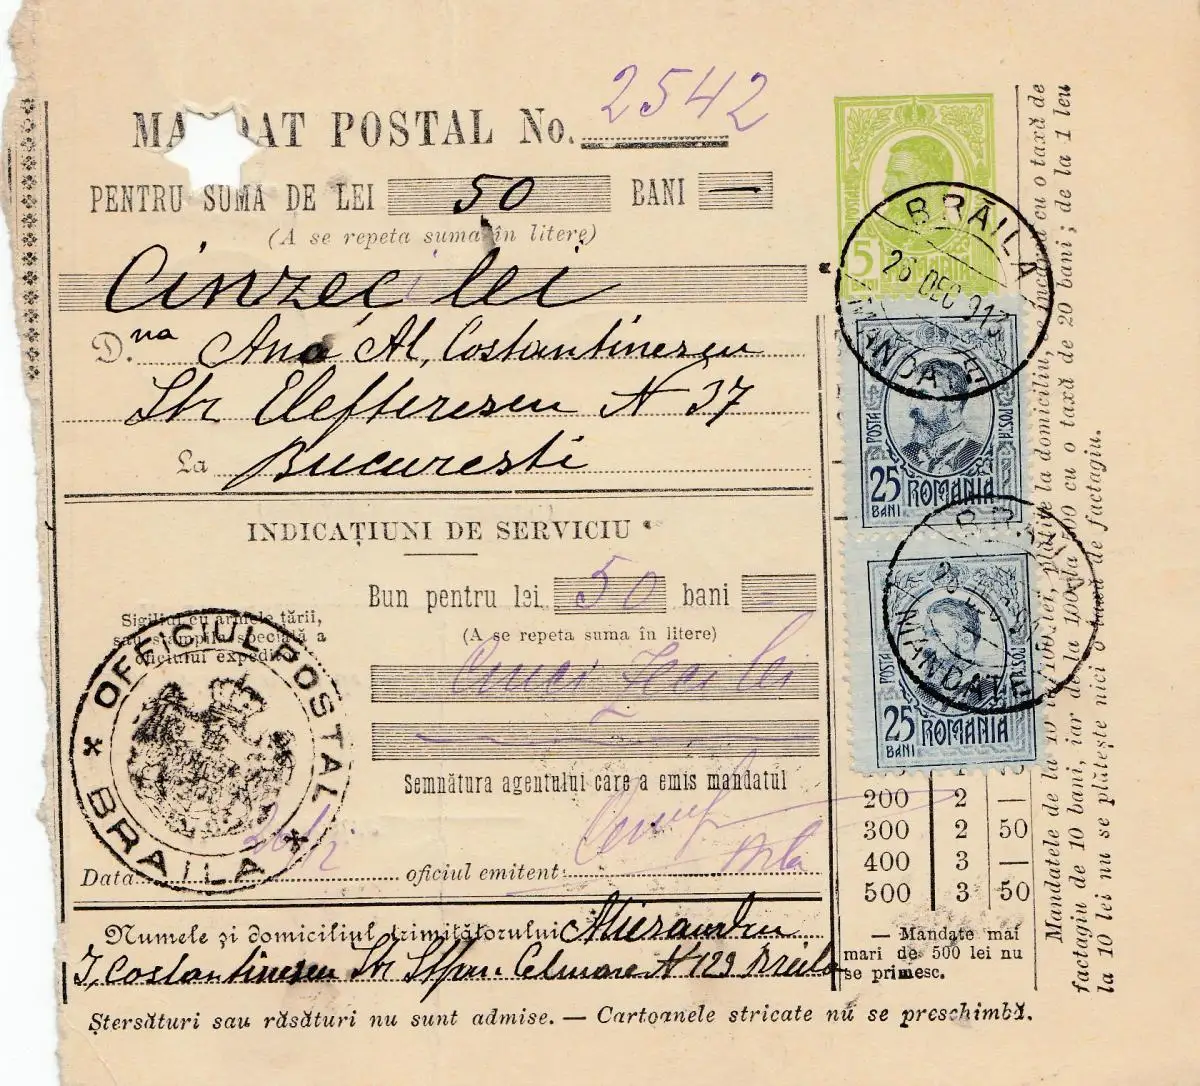 MANDAT POSTAL No. 2542
PENTRU SUMA DE LEI 50 BANI —
(A se repeta suma în litere)
Cinzeci lei
D.na Ana Al. Costantinescu
Str Elefterescu N 37
La Bucuresti
INDICAȚIUNI DE SERVICIU
Bun pentru lei 50 bani =
(A se repeta suma în litere)
Cinci Zeci lei
Sigiliul cu armele tării,
sau stampila specială a
oficiului expedit
OFFICIUL POSTAL
BRAILA
Semnătura agentului care a emis mandatul
Data
oficiul emitent:
Numele și domiciliul trimițătorului
I. Costantinescu Str Ștefan Celmare N 123 Braila
Ștersături sau răsături nu sunt admise. — Cartoanele stricate nu se preschimbă.
POSTA
5
ROMANIA
BRĂILA
26 DEC 913
MANDATE
POSTA POSTA
25 BANI ROMANIA
BRAILA
MANDATE
POSTA POSTA
25 BANI ROMANIA
200 2 —
300 2 50
400 3 —
500 3 50
— Mandate mai
mari de 500 lei nu
se primesc.
Mandatele de la 10 la 100 lei, plătite la domiciliu, încarcă cu o taxă de
factagiu de 10 bani, iar de la 100 la 500 cu o taxă de 20 bani; de la 1 leu
la 10 lei nu se plătește nici o taxă de factagiu.